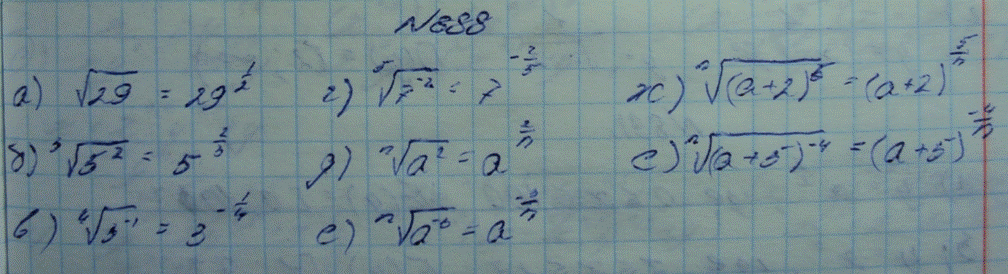 №688
а) √29 = 29^(1/2)
б) ³√5² = 5^(2/3)
в) ⁴√3⁻¹ = 3^(-1/4)
г) ⁵√7⁻² = 7^(-2/5)
д) ⁿ√a² = a^(2/n)
е) ⁿ√a⁻⁶ = a^(-6/n)
ж) ⁿ√(a+2)⁵ = (a+2)^(5/n)
е) ⁿ√(a+5)⁻⁴ = (a+5)^(-4/n)